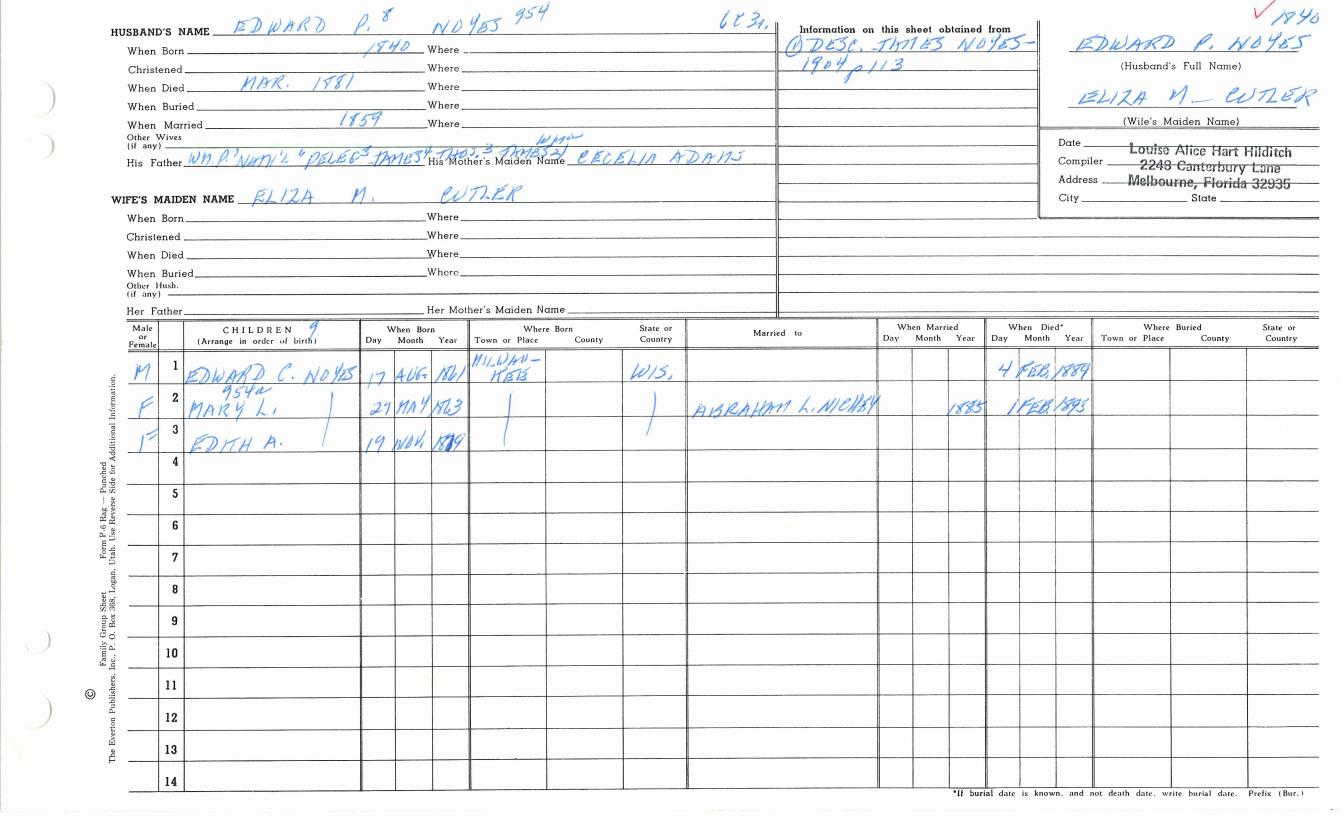 HUSBAND'S NAME EDWARD P. 8 NOYES 954
When Born 1840 Where
Christened Where
When Died MAR. 1881 Where
When Buried Where
When Married 1859 Where
Other Wives
(if any)
His Father WM. P. NATH'L PELEG JAMES THOS. JAMES His Mother's Maiden Name CECELIA ADAMS
WIFE'S MAIDEN NAME ELIZA M. CUTLER
When Born Where
Christened Where
When Died Where
When Buried Where
Other Hush.
(if any)
Her Father Her Mother's Maiden Name
Information on this sheet obtained from
① DESC. JAMES NOYES-
1904 p113
✓ 1840
EDWARD P. NOYES
(Husband's Full Name)
ELIZA M. CUTLER
(Wife's Maiden Name)
Date
Compiler
Address
City State
Louise Alice Hart Hilditch
2248 Canterbury Lane
Melbourne, Florida 32935
Male or Female CHILDREN 9 (Arrange in order of birth) When Born Day Month Year Where Born Town or Place County State or Country Married to When Married Day Month Year When Died* Day Month Year Where Buried Town or Place County State or Country
M 1 EDWARD C. NOYES 17 AUG. 1861 MILWAU-KEE WIS. 4 FEB. 1889
954a
F 2 MARY L. 27 MAY 1863 ABRAHAM L. 1885 1 FEB. 1895
F 3 EDITH A. 19 NOV.
4
5
6
7
8
9
10
11
12
13
14
*If burial date is known, and not death date, write burial date. Prefix (Bur.)
Family Group Sheet Form P-6 Rag — Punched
© The Everton Publishers, Inc., P. O. Box 368, Logan, Utah. Use Reverse Side for Additional Information.